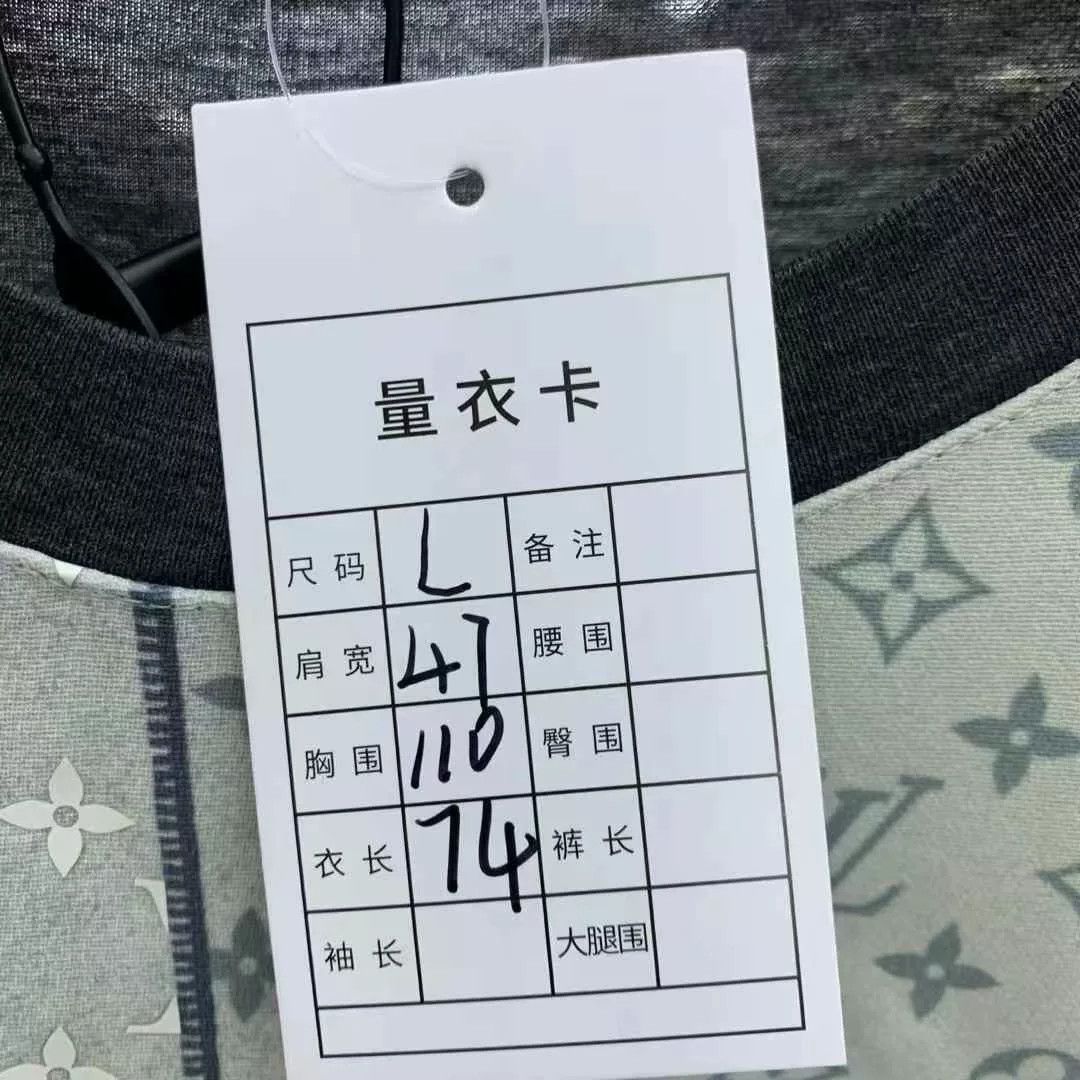 量衣卡
尺码 L 备注
肩宽 47 腰围
胸围 110 臀围
衣长 74 裤长
袖长 大腿围